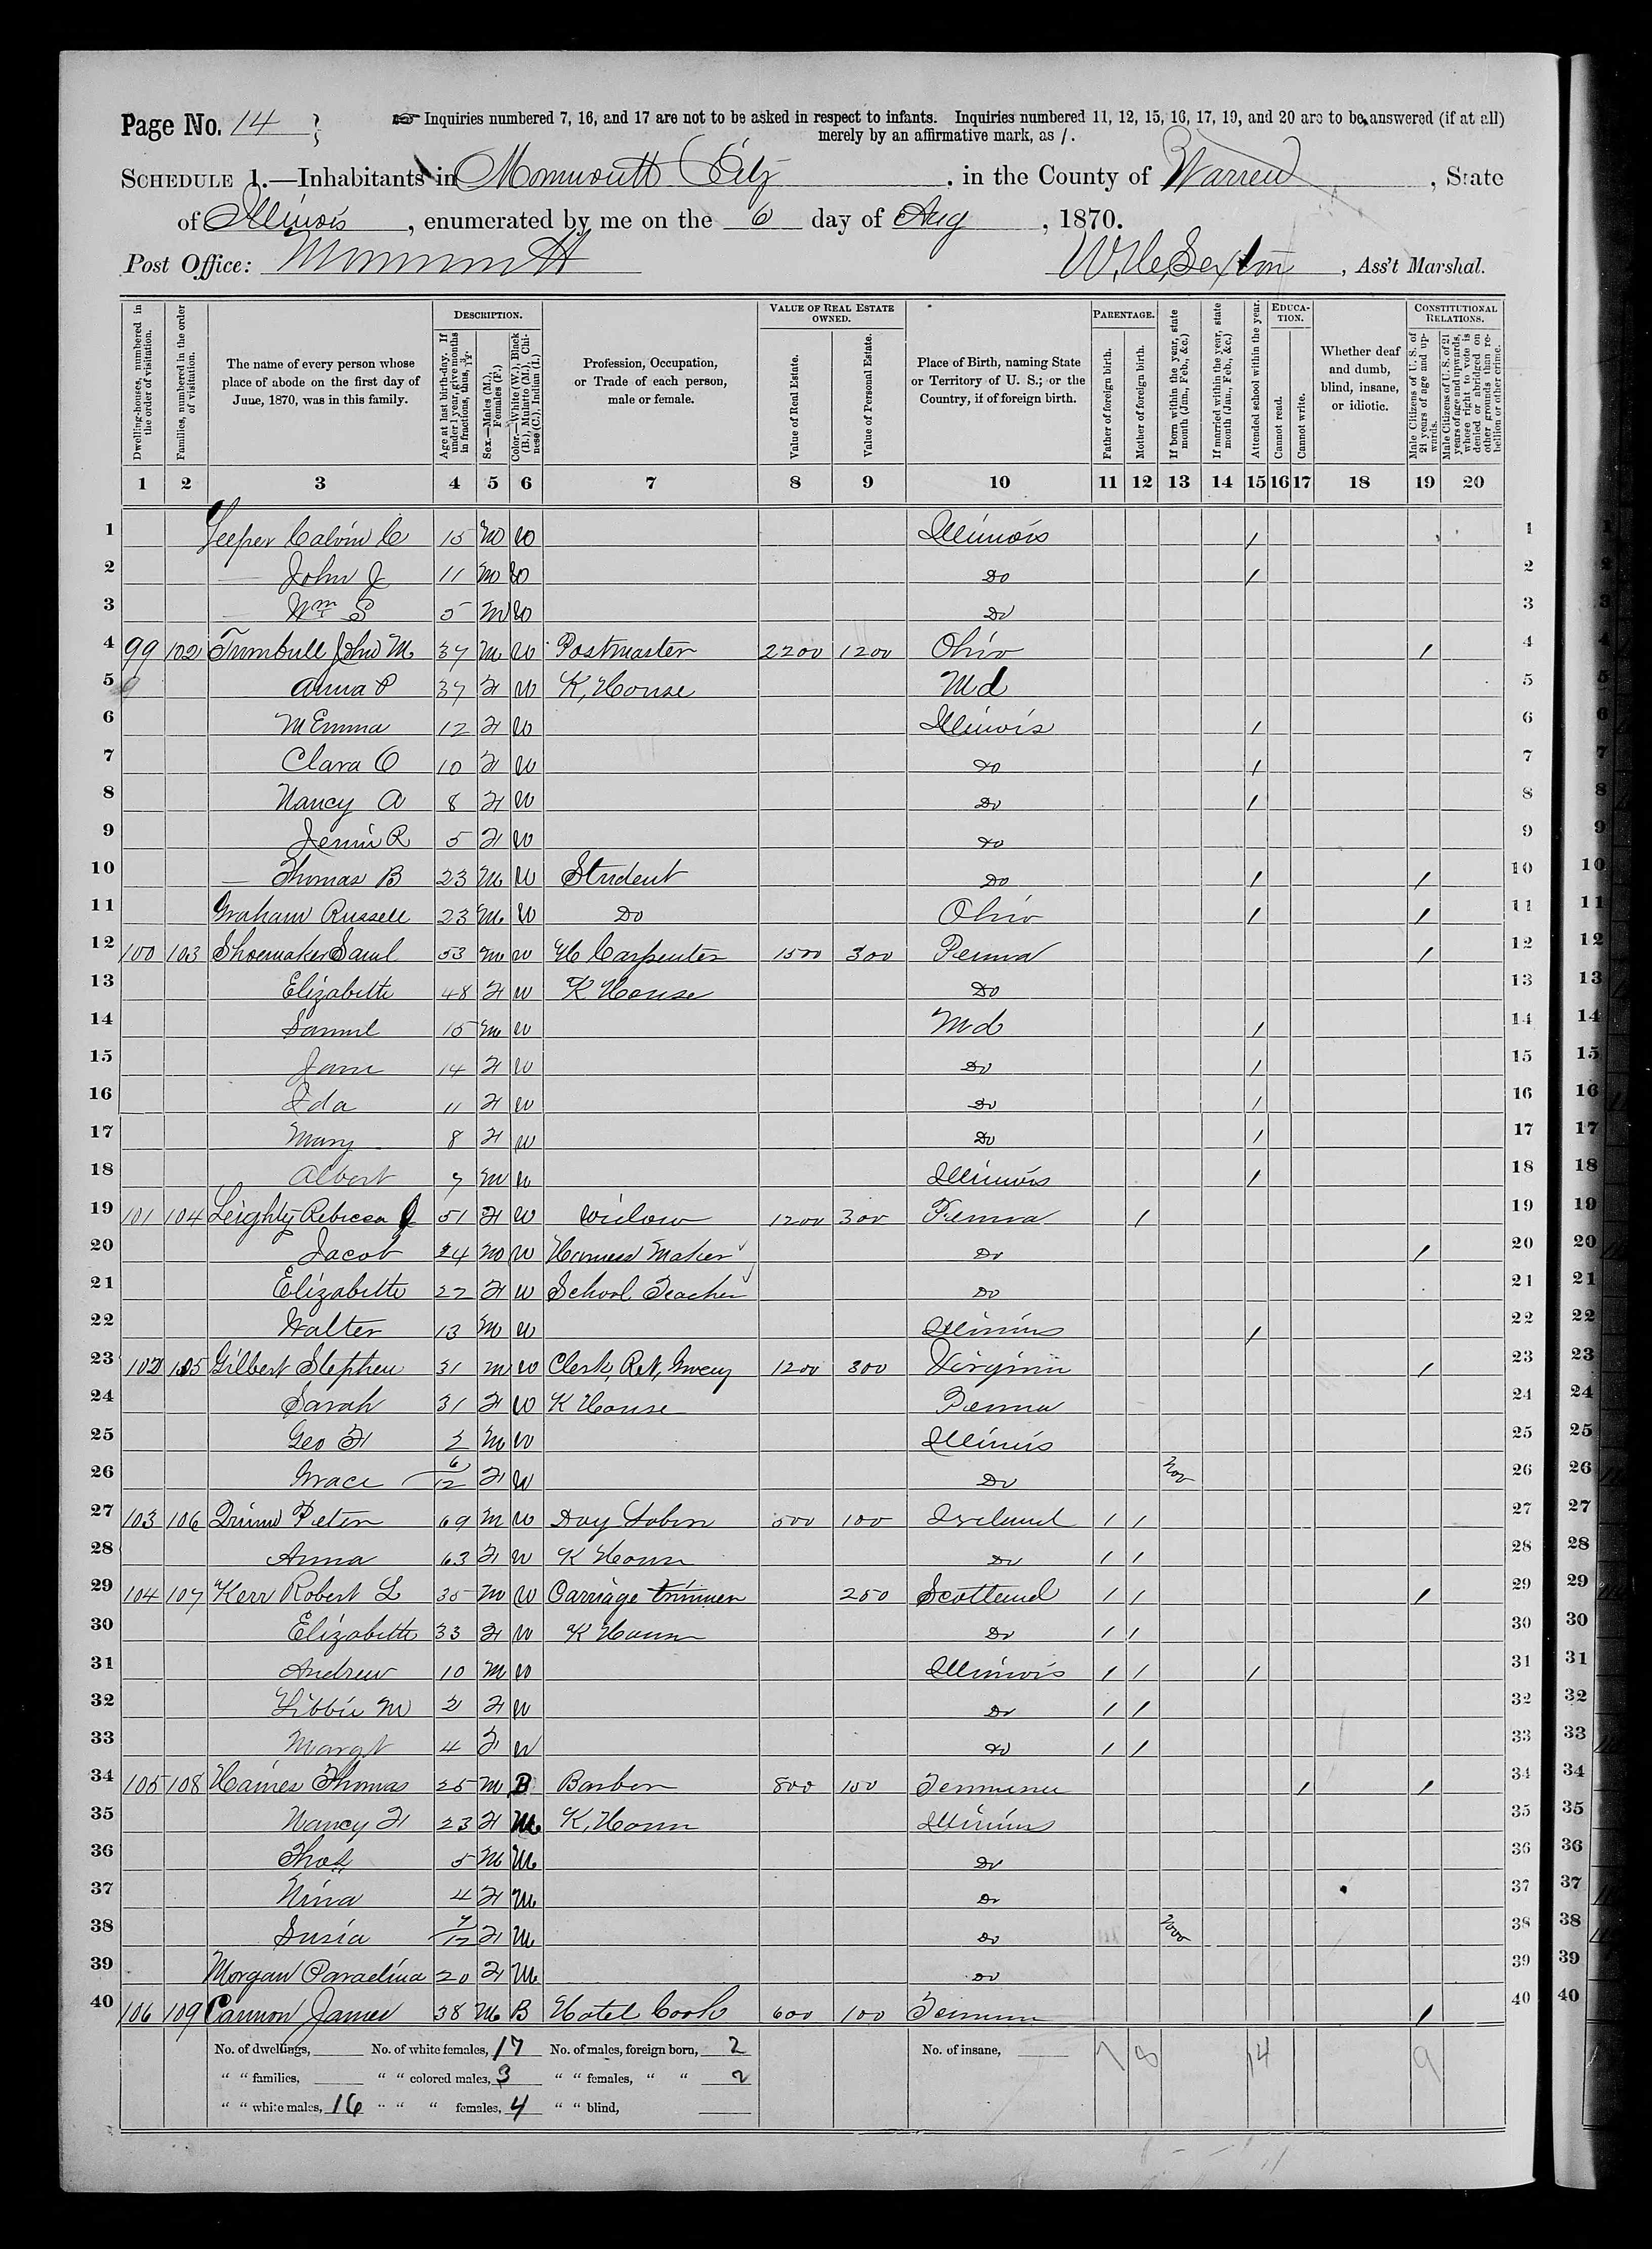 Page No. 14
Inquiries numbered 7, 16, and 17 are not to be asked in respect to infants. Inquiries numbered 11, 12, 15, 16, 17, 19, and 20 are to be answered (if at all)
merely by an affirmative mark, as /.
SCHEDULE 1.—Inhabitants in Monmouth City, in the County of Warren, State
of Illinois, enumerated by me on the 6 day of Aug, 1870.
Post Office: Monmouth W. H. Sexton, Ass't Marshal.
Dwelling-houses, numbered in the order of visitation.
Families, numbered in the order of visitation.
The name of every person whose place of abode on the first day of June, 1870, was in this family.
DESCRIPTION.
Age at last birth-day. If under 1 year, give months in fractions, thus, 3/12.
Sex.—Males (M.), Females (F.)
Color.—White (W.), Black (B.), Mulatto (M.), Chinese (C.), Indian (I.)
Profession, Occupation, or Trade of each person, male or female.
VALUE OF REAL ESTATE OWNED.
Value of Real Estate.
Value of Personal Estate.
Place of Birth, naming State or Territory of U. S.; or the Country, if of foreign birth.
PARENTAGE.
Father of foreign birth.
Mother of foreign birth.
If born within the year, state month (Jan., Feb., &c.)
If married within the year, state month (Jan., Feb., &c.)
Attended school within the year.
EDUCATION.
Cannot read.
Cannot write.
Whether deaf and dumb, blind, insane, or idiotic.
CONSTITUTIONAL RELATIONS.
Male Citizens of U. S. of 21 years of age and upwards.
Male Citizens of U. S. of 21 years of age and upwards, whose right to vote is denied or abridged on other grounds than rebellion or other crime.
1 2 3 4 5 6 7 8 9 10 11 12 13 14 15 16 17 18 19 20
1 Leeper Calvin C 15 M W Illinois / 1
2 — John J 11 M W Do / 2
3 — Wm S 5 M W Do 3
4 99 102 Turnbull John M 37 M W Postmaster 2200 1200 Ohio / 4
5 Anna P 37 F W K, House Md 5
6 M Emma 12 F W Illinois / 6
7 Clara O 10 F W Do / 7
8 Nancy A 8 F W Do / 8
9 Jennie R 5 F W Do 9
10 — Thomas B 23 M W Student Do / / 10
11 Graham Russell 23 M W Do Ohio / / 11
12 100 103 Shoemaker Saml 53 M W H Carpenter 1500 300 Penna / 12
13 Elizabeth 48 F W K House Do 13
14 Samuel 15 M W Md / 14
15 Jane 14 F W Do / 15
16 Ida 11 F W Do / 16
17 Mary 8 F W Do / 17
18 Albert 7 M W Illinois / 18
19 101 104 Leighty Rebecca J 51 F W Widow 1200 300 Penna / 19
20 Jacob 24 M W Harness Maker Do / 20
21 Elizabeth 22 F W School Teacher Do 21
22 Walter 13 M W Illinois / 22
23 102 105 Gilbert Stephen 31 M W Clerk, Ret, Grocery 1200 300 Virginia / 23
24 Sarah 31 F W K House Penna 24
25 Geo F 2 M W Illinois 25
26 Grace 6/12 F W Do Nov 26
27 103 106 Quinn Peter 69 M W Day Labor 500 100 Ireland / / 27
28 Anna 63 F W K House Do / / 28
29 104 107 Kerr Robert L 35 M W Carriage trimmer 250 Scotland / / / 29
30 Elizabeth 33 F W K House Do / / 30
31 Andrew 10 M W Illinois / / / 31
32 Libbie M 2 F W Do / / 32
33 Margt 4 F W Do / / 33
34 105 108 Haines Thomas 25 M B Barber 800 100 Tennessee / / 34
35 Nancy F 23 F M K, House Illinois 35
36 Thos 5 M M Do 36
37 Nina 4 F M Do 37
38 Susia 7/12 F M Do Nov 38
39 Morgan Paradina 20 F M Do 39
40 106 109 Cannon James 38 M B Hotel Cook 600 100 Tennessee / 40
No. of dwellings, No. of white females, 17 No. of males, foreign born, 2 No. of insane, 7 8 14 9
" " families, " " colored males, 3 " " females, " " 2
" " white males, 16 " " " females, 4 " " blind,